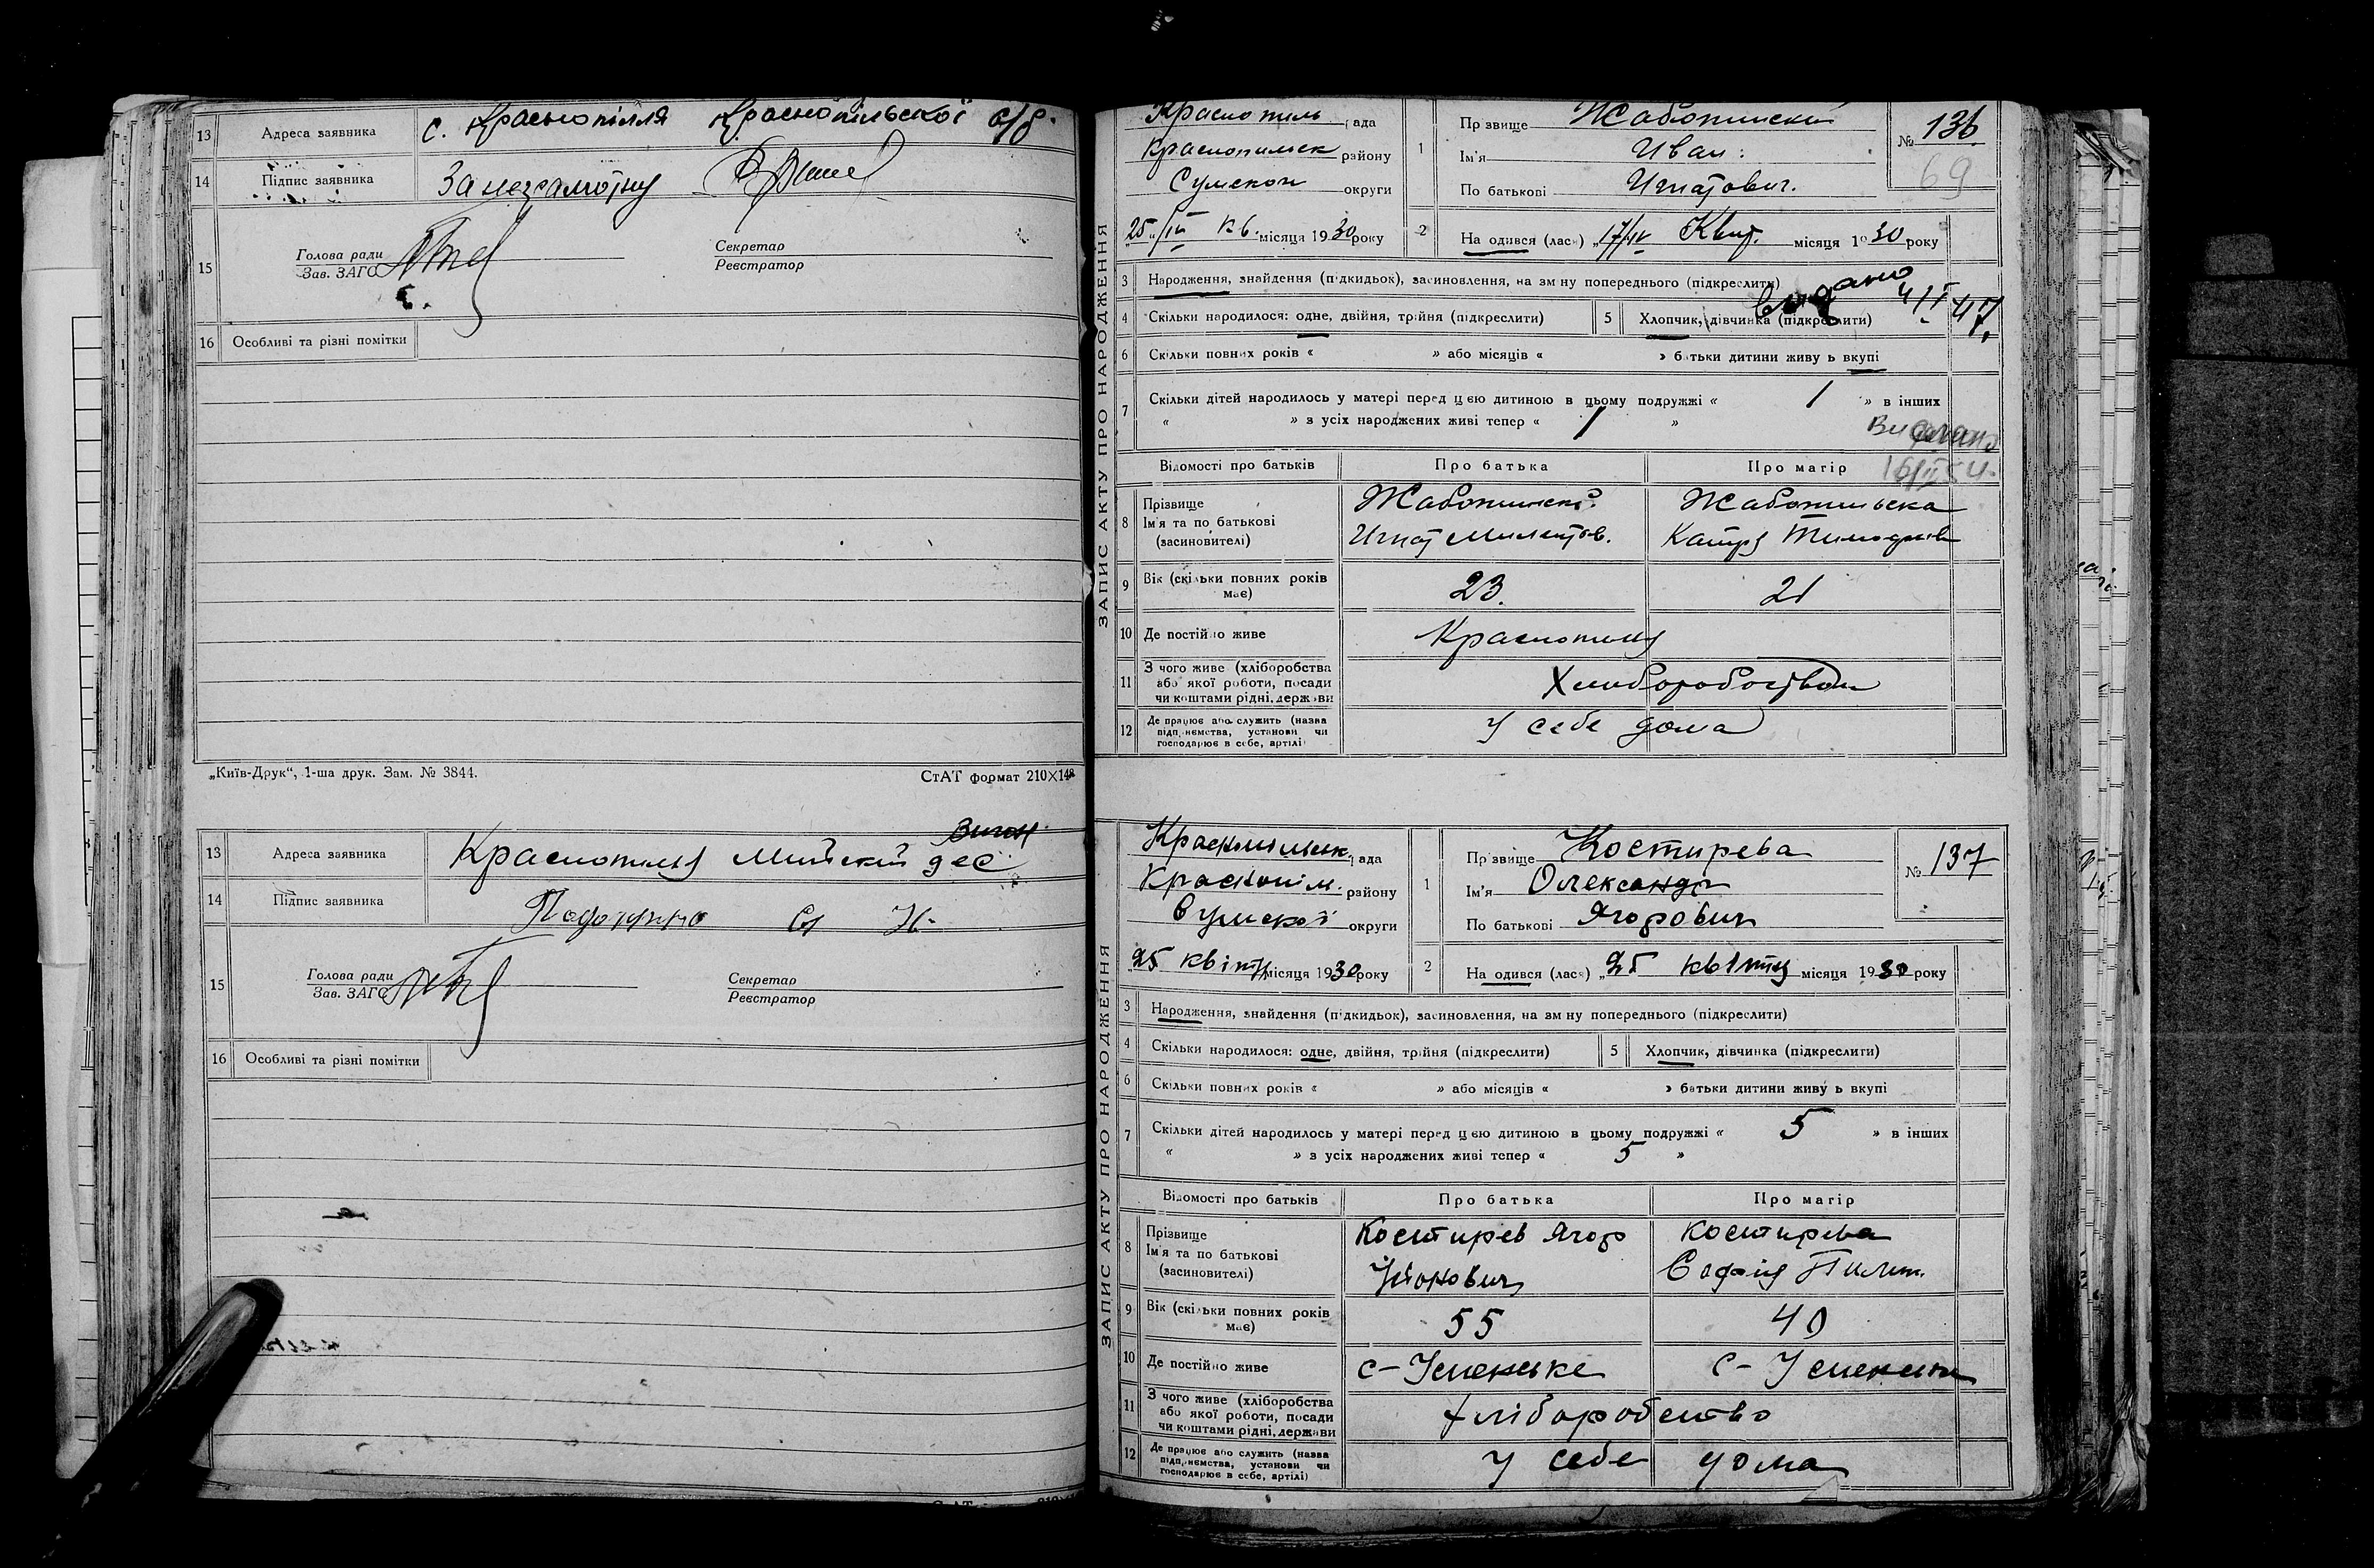 13 Адреса заявника с. Краснопілля Краснопільської с/р.
14 Підпис заявника За незамóтну
15 Голова ради Секретар
Зав. ЗАГС Реєстратор
16 Особливі та різні помітки
„Київ-Друк“, 1-ша друк. Зам. № 3844. СтАТ формат 210×148
13 Адреса заявника Краснопилля
14 Підпис заявника
15 Голова ради Секретар
Зав. ЗАГС Реєстратор
16 Особливі та різні помітки
ЗАПИС АКТУ ПРО НАРОДЖЕННЯ
Краснопиль рада
Краснопильск району
Сумской округи
„25“/IV Кв. місяця 1930 року
1 Прізвище Жаботинский
Ім'я Иван
По батькові Игнатович.
№ 136
69
2 Народився (лась) „17/IV Квит. місяця 1930 року
3 Народження, знайдення (підкидьок), засиновлення, на зміну попереднього (підкреслити)
Видано 4/I 47
4 Скільки народилося: одне, двійня, трійня (підкреслити) 5 Хлопчик, дівчинка (підкреслити)
6 Скільки повних років « » або місяців « » батьки дитини живуть вкупі
7 Скільки дітей народилось у матері перед цією дитиною в цьому подружжі « 1 » в інших
« » з усіх народжених живі тепер « 1 »
Видано
Відомості про батьків Про батька Про матір
8 Прізвище Жаботинский Жаботинська
Ім'я та по батькові Игнат
(засиновителі)
9 Вік (скільки повних років має) 23. 21
10 Де постійно живе Краснопилля
11 З чого живе (хліборобства
або якої роботи, посади
чи коштами рідні, держави Хлиборобоством
12 Де працює або служить (назва
підприємства, установи чи
господарює в себе, артілі) У себе дома
ЗАПИС АКТУ ПРО НАРОДЖЕННЯ
Краснопильск. рада
Краснопіл. району
Сумської округи
„25 квітня місяця 1930 року
1 Прізвище Костирева
Ім'я Олександр
По батькові Ягорович
№ 137
2 Народився (лась) „25 квітня місяця 1930 року
3 Народження, знайдення (підкидьок), засиновлення, на зміну попереднього (підкреслити)
4 Скільки народилося: одне, двійня, трійня (підкреслити) 5 Хлопчик, дівчинка (підкреслити)
6 Скільки повних років « » або місяців « » батьки дитини живуть вкупі
7 Скільки дітей народилось у матері перед цією дитиною в цьому подружжі « 5 » в інших
« » з усіх народжених живі тепер « 5 »
Відомості про батьків Про батька Про матір
8 Прізвище Костирев Ягор Костирева
Ім'я та по батькові Софія
(засиновителі)
9 Вік (скільки повних років має) 55 40
10 Де постійно живе с-Успенське с-Успенське
11 З чого живе (хліборобства
або якої роботи, посади
чи коштами рідні, держави хліборобство
12 Де працює або служить (назва
підприємства, установи чи
господарює в себе, артілі) у себе дома